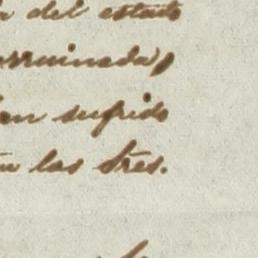 del estado
arruinada,
han sufrido
las Sres.